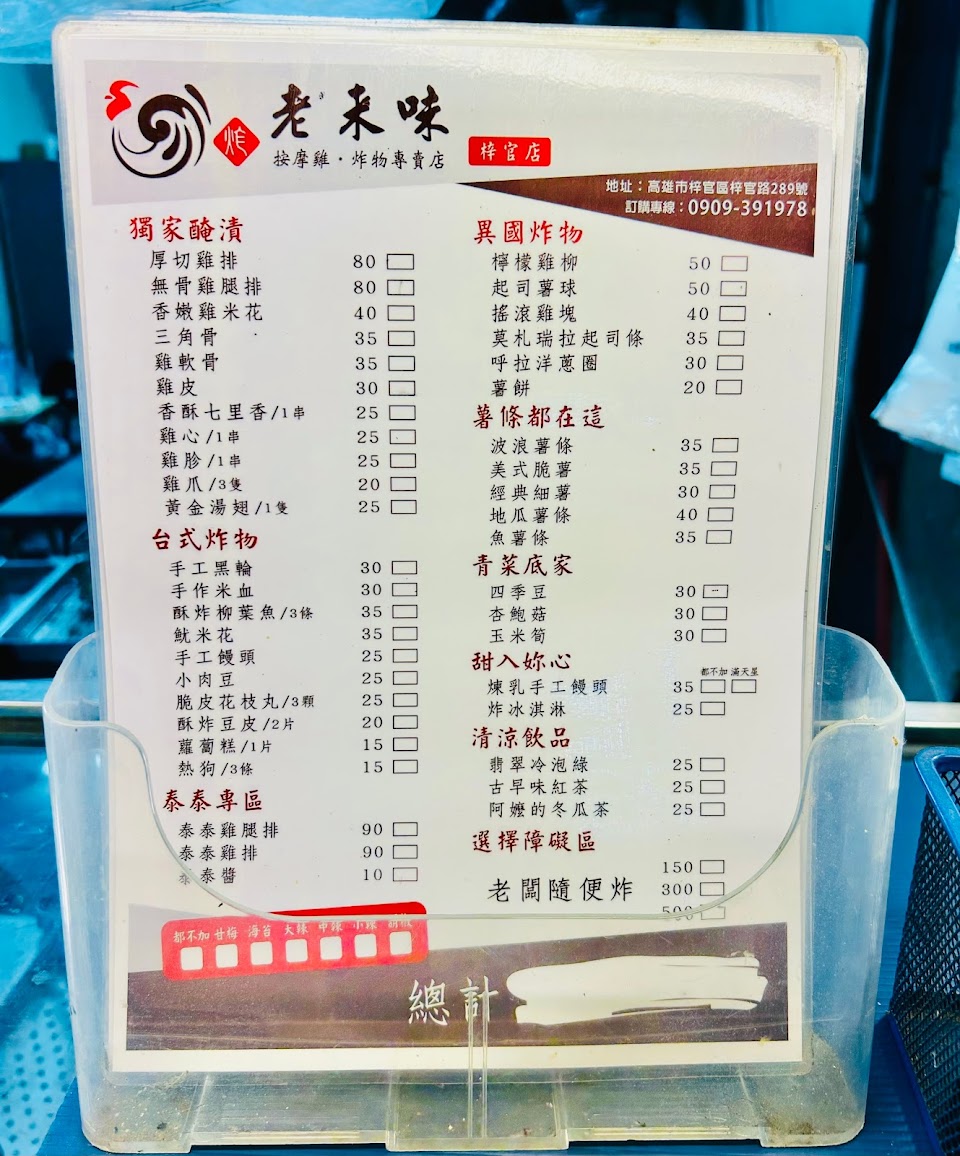 炸 老未味
按摩雞・炸物專賣店
梓官店
地址：高雄市梓官區梓官路289號
訂購專線：0909-391978
獨家醃漬
厚切雞排 80
無骨雞腿排 80
香嫩雞米花 40
三角骨 35
雞軟骨 35
雞皮 30
香酥七里香/1串 25
雞心/1串 25
雞胗/1串 25
雞爪/3隻 20
黃金湯翅/1隻 25
台式炸物
手工黑輪 30
手作米血 30
酥炸柳葉魚/3條 35
魷米花 35
手工饅頭 25
小肉豆 25
脆皮花枝丸/3顆 25
酥炸豆皮/2片 20
蘿蔔糕/1片 15
熱狗/3條 15
泰泰專區
泰泰雞腿排 90
泰泰雞排 90
泰泰醬 10
異國炸物
檸檬雞柳 50
起司薯球 50
搖滾雞塊 40
莫札瑞拉起司條 35
呼拉洋蔥圈 30
薯餅 20
薯條都在這
波浪薯條 35
美式脆薯 35
經典細薯 30
地瓜薯條 40
魚薯條 35
青菜底家
四季豆 30
杏鮑菇 30
玉米筍 30
甜入妳心
都不加 滿天星
煉乳手工饅頭 35
炸冰淇淋 25
清涼飲品
翡翠冷泡綠 25
古早味紅茶 25
阿嬤的冬瓜茶 25
選擇障礙區
150
老闆隨便炸 300
500
都不加 甘梅 海苔 大辣 中辣 小辣 胡椒
總計